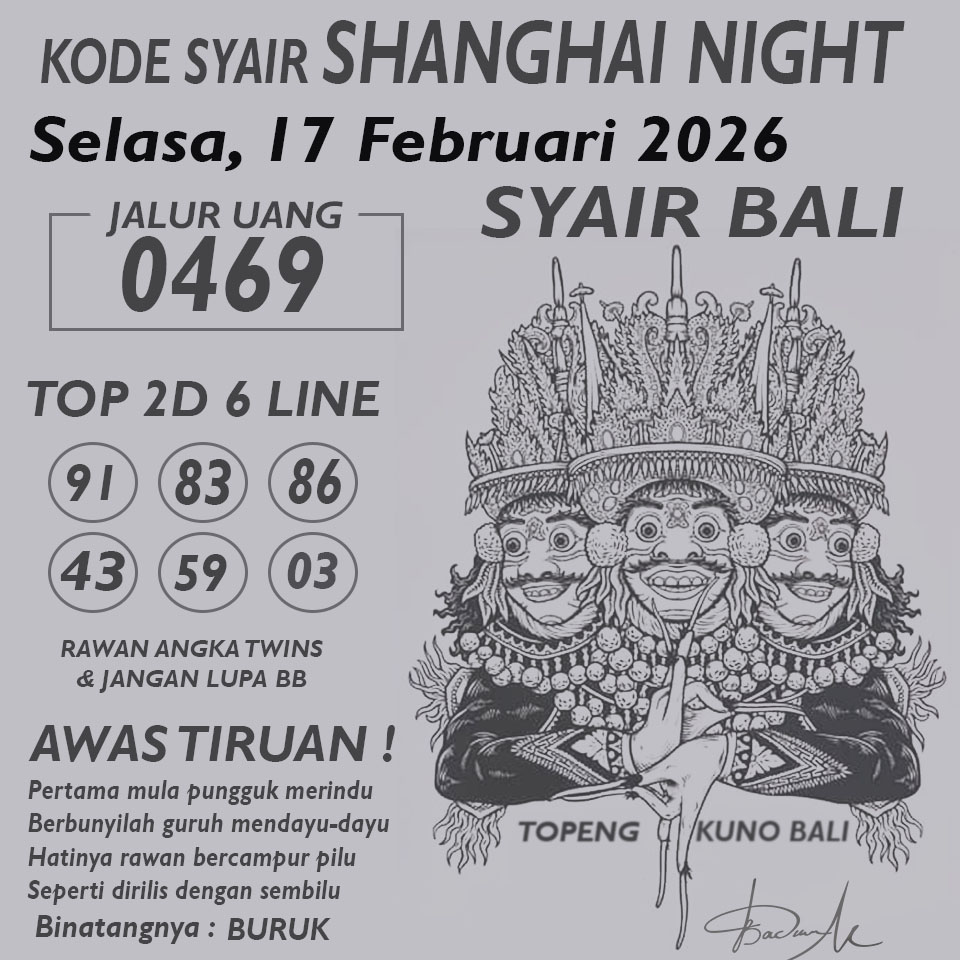 KODE SYAIR SHANGHAI NIGHT
Selasa, 17 Februari 2026
SYAIR BALI
JALUR UANG
0469
TOP 2D 6 LINE
91 83 86
43 59 03
RAWAN ANGKA TWINS
& JANGAN LUPA BB
AWAS TIRUAN !
Pertama mula pungguk merindu
Berbunyilah guruh mendayu-dayu
Hatinya rawan bercampur pilu
Seperti dirilis dengan sembilu
Binatangnya : BURUK
TOPENG KUNO BALI